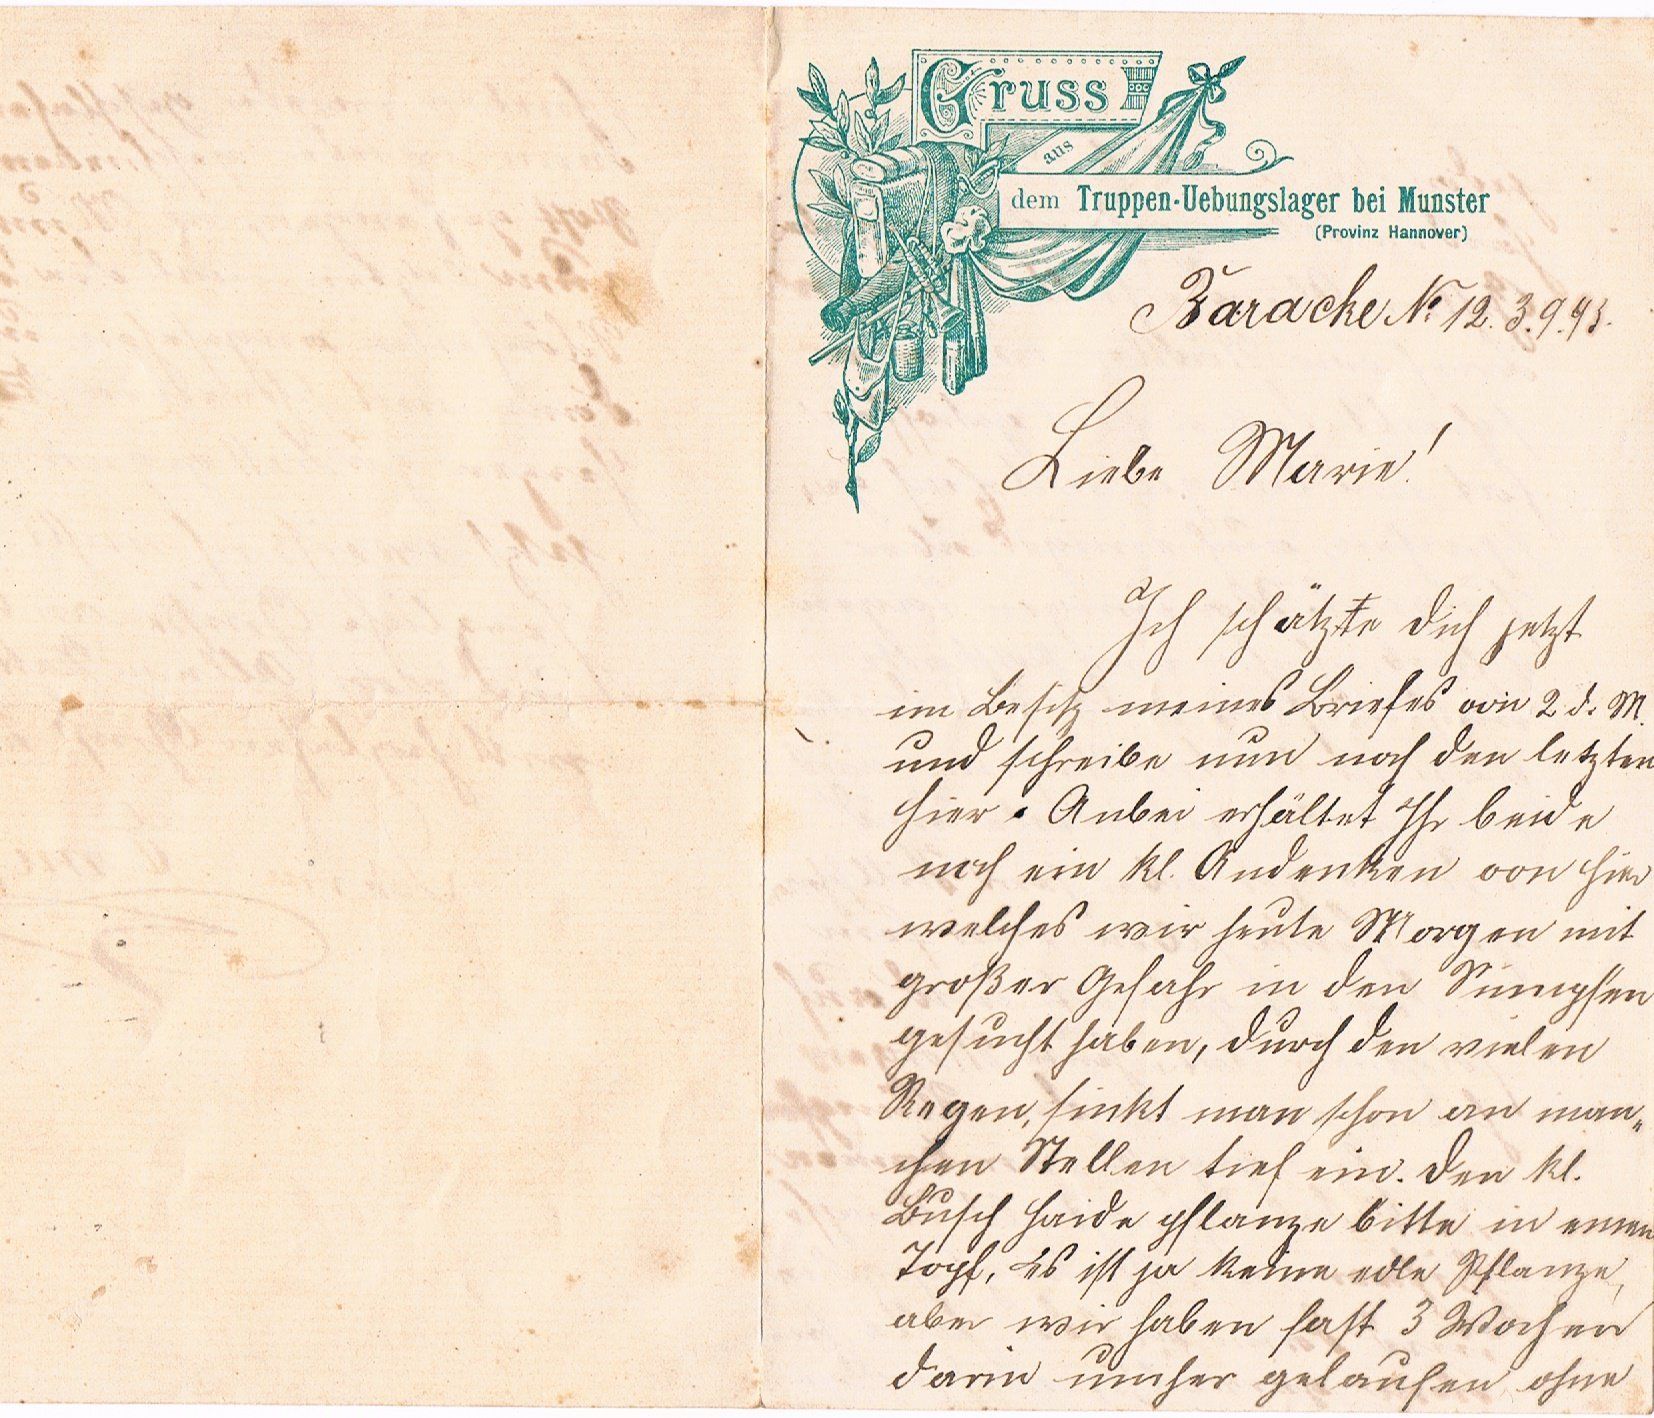 Gruss
aus
dem Truppen-Uebungslager bei Munster
(Provinz Hannover)
Baracke No 12. 3.9.93.
Liebe Marie!
Ich schätzte dich jetzt
im Besitz meines Briefes von 2 d. M.
und schreibe nun noch den letzten
hier. Anbei erhältet Ihr beide
noch ein kl. Andenken von hier
welches wir heute Morgen mit
großer Gefahr in den Sümpfen
gesucht haben, durch den vielen
Regen, sinkt man schon an man-
chen Stellen tief ein. Den kl.
Busch Haide pflanze bitte in einen
Topf, Es ist ja keine edle Pflanze,
aber wir haben fast 3 Wochen
darin umher gelaufen ohne